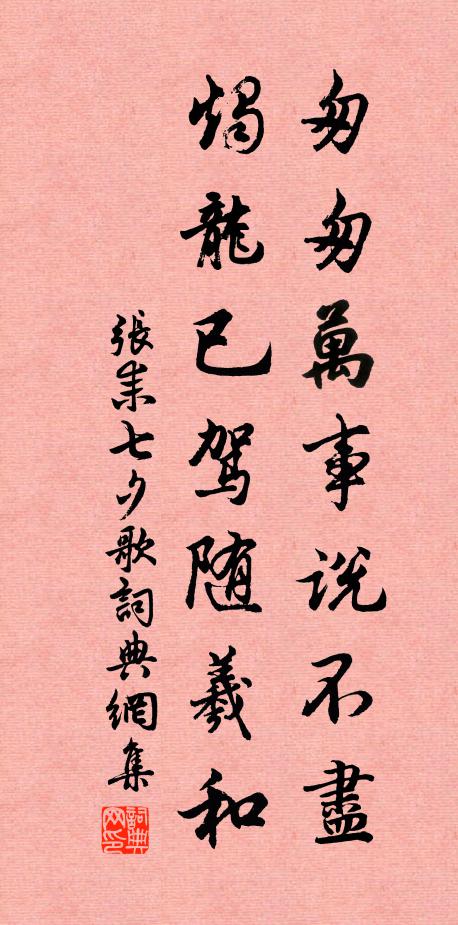 匆匆萬事説不盡
燭龍已駕随羲和
張耒七夕歌詞典網集
詞典网印